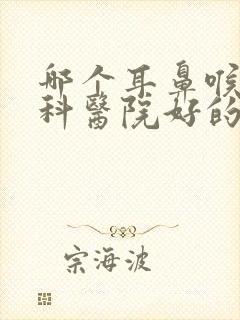 哪个耳鼻喉
科醫院好的
宗海波